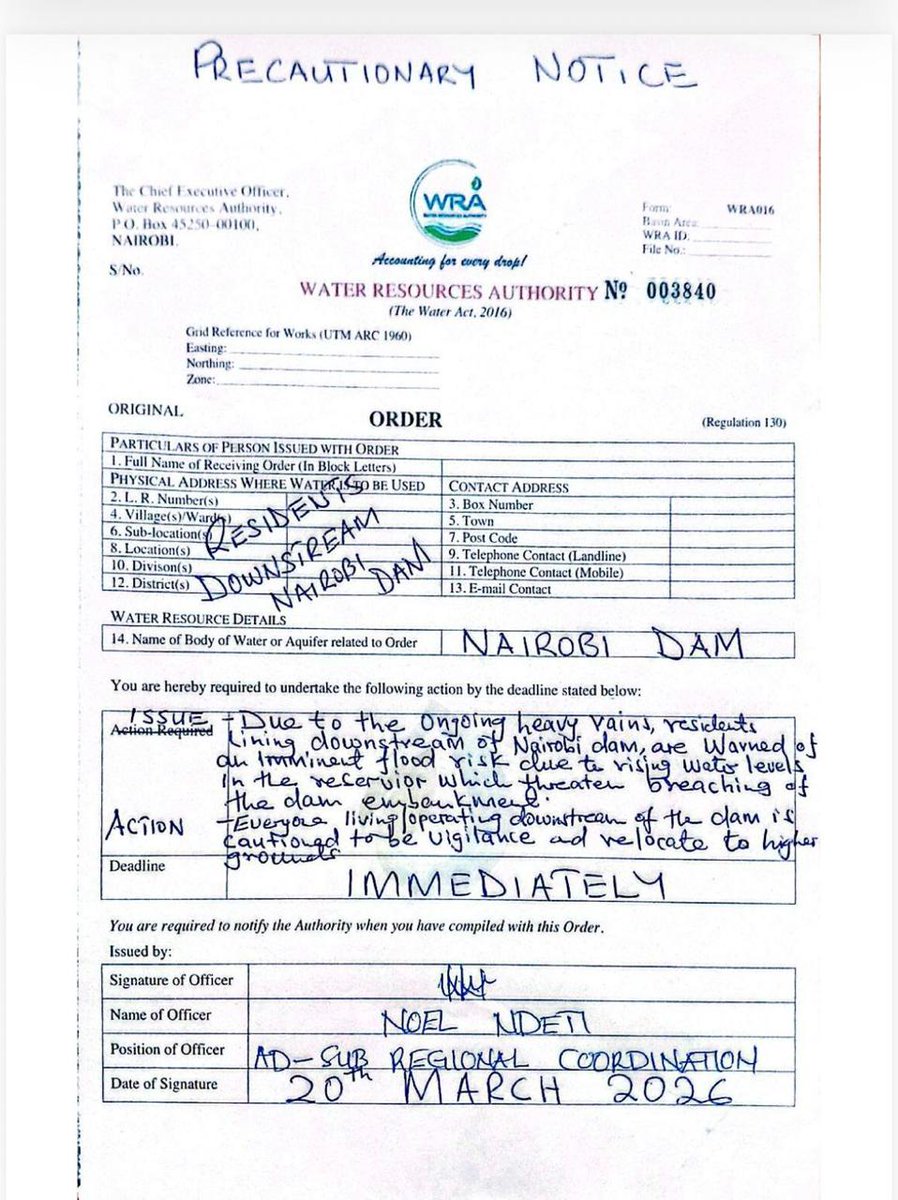 PRECAUTIONARY NOTICE
The Chief Executive Officer,
Water Resources Authority,
P.O. Box 45250-00100,
NAIROBI.
S/No.
WRA
WATER RESOURCES AUTHORITY
Accounting for every drop!
Form: WRA016
Basin Area:
WRA ID:
File No.:
WATER RESOURCES AUTHORITY No 003840
(The Water Act, 2016)
Grid Reference for Works (UTM ARC 1960)
Easting:
Northing:
Zone:
ORIGINAL
ORDER
(Regulation 130)
PARTICULARS OF PERSON ISSUED WITH ORDER
1. Full Name of Receiving Order (In Block Letters)
PHYSICAL ADDRESS WHERE WATER IS TO BE USED
CONTACT ADDRESS
2. L. R. Number(s)
3. Box Number
4. Village(s)/Ward(s)
5. Town
6. Sub-location(s)
7. Post Code
8. Location(s)
9. Telephone Contact (Landline)
10. Divison(s)
11. Telephone Contact (Mobile)
12. District(s)
13. E-mail Contact
RESIDENTS
DOWNSTREAM
NAIROBI DAM
WATER RESOURCE DETAILS
14. Name of Body of Water or Aquifer related to Order NAIROBI DAM
You are hereby required to undertake the following action by the deadline stated below:
ISSUE
Action Required
-Due to the ongoing heavy rains, residents
lining downstream of Nairobi dam, are warned of
an imminent flood risk due to rising water levels
in the reservior which threaten breaching of
the dam embankment.
ACTION
-Everyone living/operating downstream of the dam is
cautioned to be vigilance and relocate to higher
grounds
Deadline IMMEDIATELY
You are required to notify the Authority when you have compiled with this Order.
Issued by:
Signature of Officer
Name of Officer NOEL NDETI
Position of Officer AD-SUB REGIONAL COORDINATION
Date of Signature 20th MARCH 2026